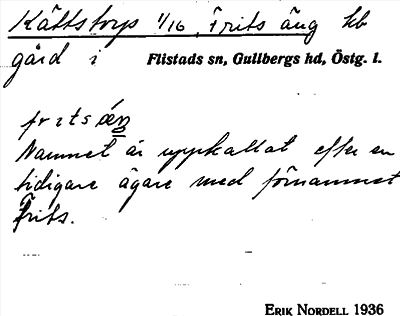 Kättstorps 1/16, Frits äng hb
gård i Flistads sn, Gullbergs hd, Östg. l.
fritsäŋ
Namnet är uppkallat efter en
tidigare ägare med förnamnet
Frits.
ERIK NORDELL 1936